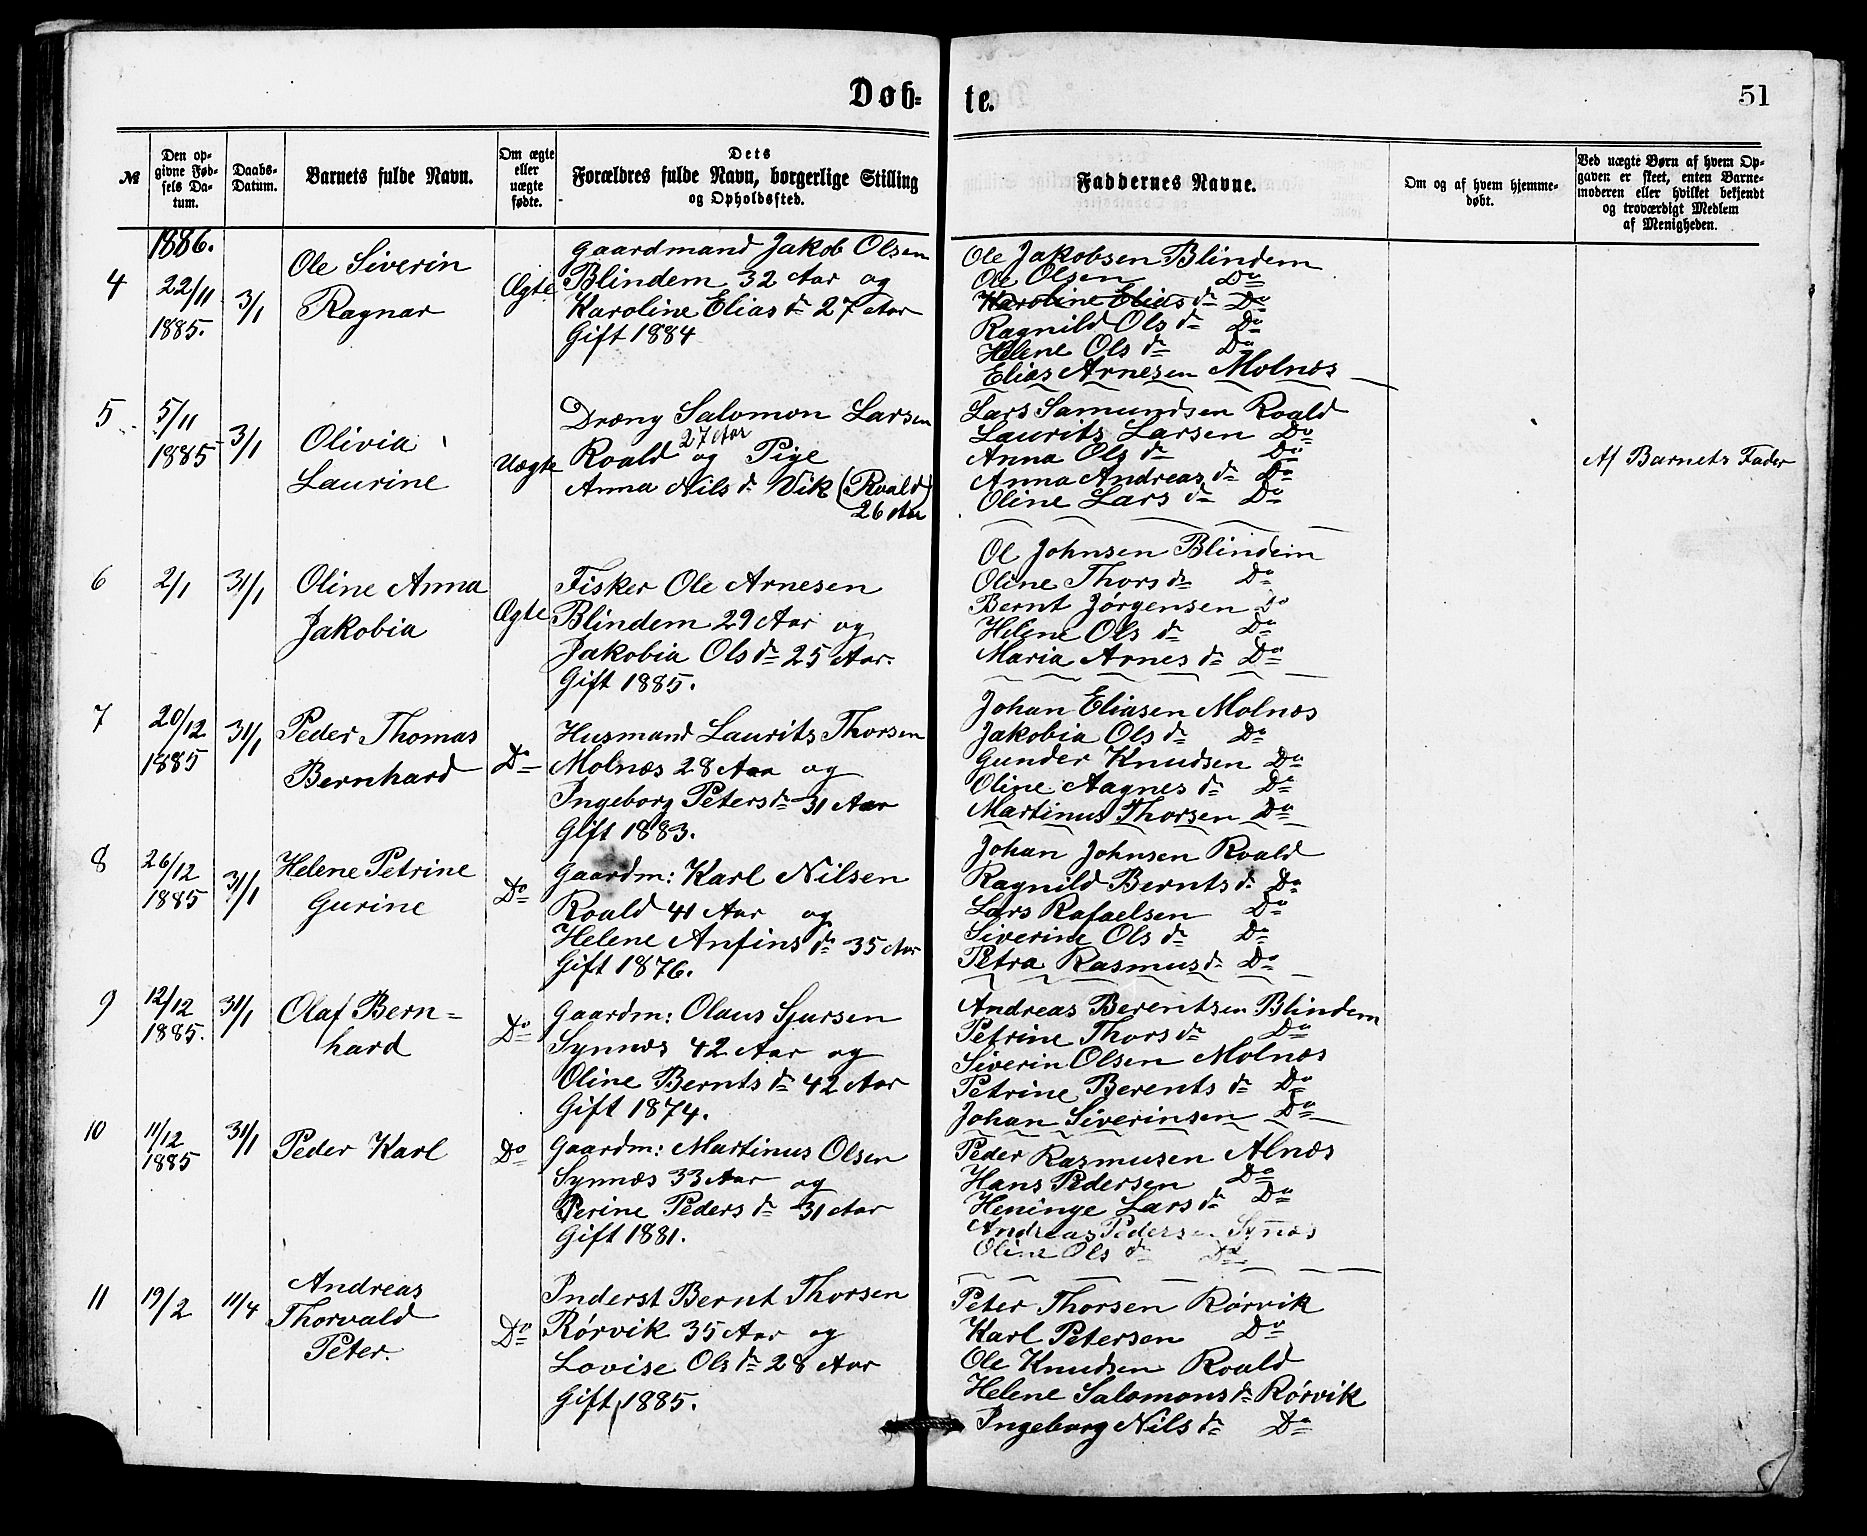 Døb-
te.
51
№
Den op-
givne Fød-
sels Da-
tum.
Daabs-
Datum.
Barnets fulde Navn.
Om ægte
eller
uægte
fødte.
Dets
Forældres fulde Navn, borgerlige Stilling
og Opholdssted.
Faddernes Navne.
Om og af hvem hjemme-
døbt.
Ved uægte Børn af hvem Op-
gaven er skeet, enten Barne-
moderen eller hvilket bekjendt
og troværdigt Medlem
af Menigheden.
1886.
4
22/11
1885.
3/1
Ole Siverin
Ragnar
Ægte
Gaardmand Jakob Olsen
Blindem 32 Aar og
Karoline Elias dr 27 Aar
Gift 1884
Ole Jakobsen Blindem
Ole Olsen Do
Karoline Elias dr Do
Ragnild Ols dr Do
Helene Ols dr Do
Elias Arnesen Molnæs
5
5/11
1885
3/1
Olivia
Laurine
Uægte
Dræng Salomon Larsen
27 Aar
Roald og Pige
Anna Nils dr Vik (Roald)
26 Aar
Lars Samundsen Roald
Laurits Larsen Do
Anna Ols dr Do
Anna Andreas dr Do
Oline Lars dr Do
Af Barnets Fader
6
2/1
31/1
Oline Anna
Jakobia
Ægte
Fisker Ole Arnesen
Blindem 29 Aar og
Jakobia Ols dr 25 Aar.
Gift 1885.
Ol Johnsen Blindem
Oline Thors dr Do
Bernt Jørgensen Do
Helene Ols dr Do
Maria Arnes dr Do
7
20/12
1885
31/1
Peder Thomas
Bernhard
Do
Husmand Laurits Thorsen
Molnæs 28 Aar og
Ingeborg Peters dr 31 Aar
Gift 1883.
Johan Eliasen Molnæs
Jakobia Ols dr Do
Gunder Knudsen Do
Oline Aagnes dr Do
Martinus Thorsen Do
8
26/12
1885
31/1
Helene Petrine
Gurine
Do
Gaardm: Karl Nilsen
Roald 41 Aar og
Helene Anfins dr 35 Aar
Gift 1876.
Johan Johnsen Roald
Ragnild Bernts dr Do
Lars Rafaelsen Do
Siverine Ols dr Do
Petra Rasmus dr Do
9
12/12
1885.
31/1
Olaf Bern=
hard
Do
Gaardm: Olaus Sjursen
Synnæs 42 Aar og
Oline Bernts dr 42 Aar
Gift 1874.
Andreas Berentsen Blindem
Petrine Thors dr Do
Siverin Olsen Molnæs
Petrine Berents dr Do
Johan Siverinsen Do
10
11/12
1885
31/1
Peder Karl
Do
Gaardm: Martinus Olsen
Synnæs 33 Aar og
Perine Peders dr 31 Aar
Gift 1881.
Peder Rasmusen Alnæs
Hans Pedersen Do
Heninge Lars dr Do
Andreas Pedersen Syn̅æs
Oline Ols dr Do
11
19/2
11/4
Andreas
Thorvald
Peter.
Do
Inderst Bernt Thorsen
Rørvik 35 Aar og
Lovise Ols dr 28 Aar
Gift 1885.
Peter Thorsen Rørvik
Karl Petersen Do
Ole Knudsen Roald
Helene Salomons dr Rørvik
Ingeborg Nils dr Do